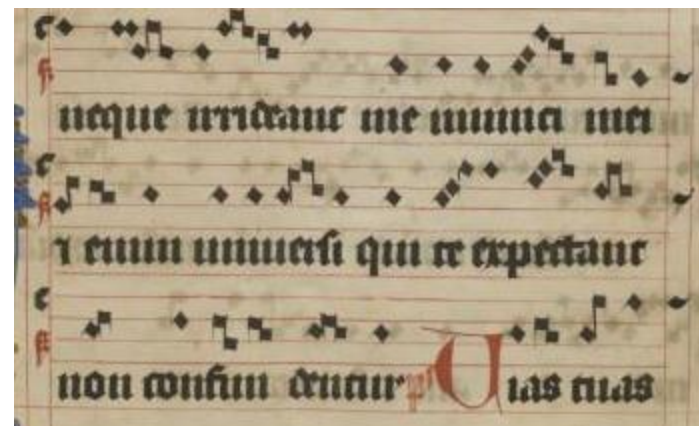 neque irrideant me inimici mei
⁊ enim universi qui te expectant
non confun dentur ps Vias tuas